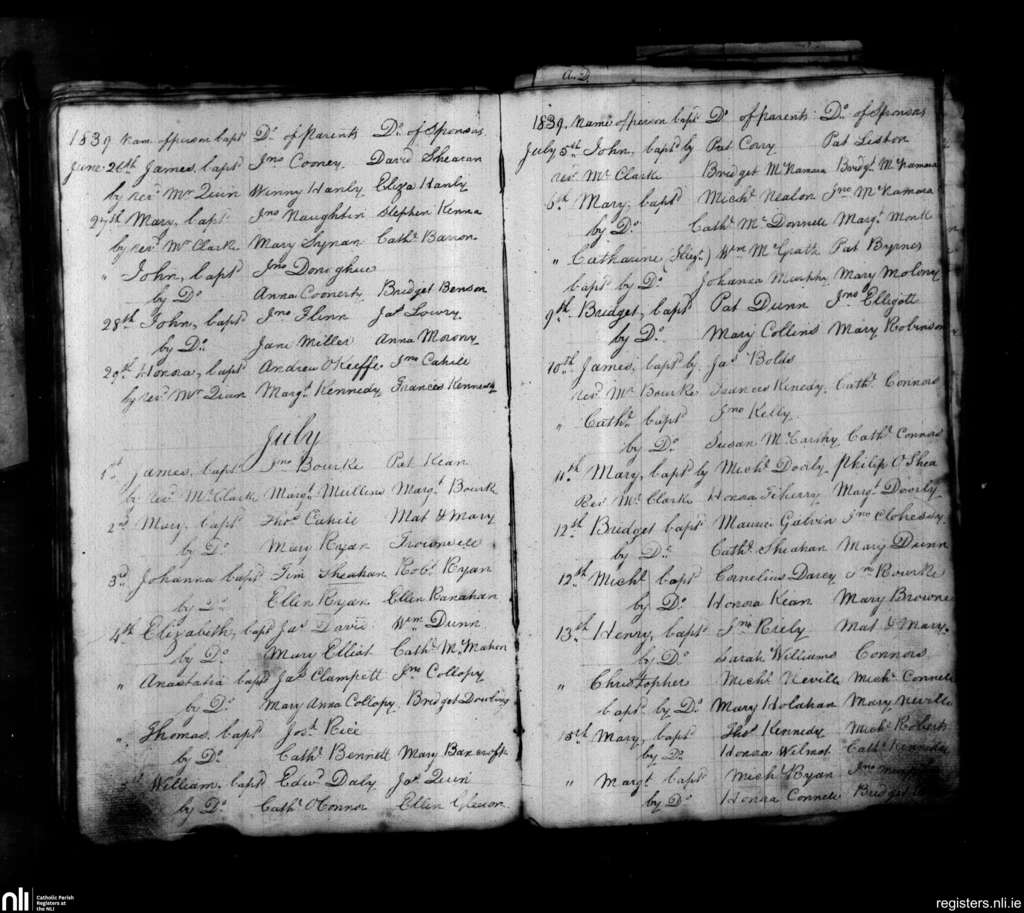 1839 Name of person bapt^d D^o of parents D^o of Sponsors
June 26th James, bapt^d Jno Cooney David Shearan
by rev^d Mr Quin Winny Hanly Eliza Hanly
27th Mary, bapt^d Jno Naughtin Stephen Kenna
by rev^d Mr Clarke Mary Lynan Cath^e Barron
" John, bapt^d Jno Donoghue
by D^o Anna Coonerty Bridget Benson
28th John, bapt^d Jno Flinn Ja^s Lowry
by D^o Jane Miller Anna Morony
29th Honora, bapt^d Andrew O'Keeffe Jno Cahill
by rev^d Mr Quin Marg^t Kennedy Frances Kennedy
July
1st James, bapt^d Jno Bourke Pat Kean
by rev^d Mr Clarke Marg^t Mullins Marg^t Bourke
2nd Mary, bapt^d Tho^s Cahill Mat & Mary
by D^o Mary Ryan
3rd Johanna bapt^d Tim Sheahan Rob^t Ryan
by D^o Ellen Ryan Ellen Ranahan
4th Elizabeth, bapt^d Ja^s David Wm Dunn
by D^o Mary Elliot Cath^e McMahon
" Anastatia bapt^d Ja^s Clampett Jno Collopy
by D^o Mary Anna Collopy Bridget Dowling
" Thomas, bapt^d Jos^h Rice
by D^o Cath^e Bennett Mary Bancroft
5th William, bapt^d Edw^d Daly Ja^s Quin
by D^o Cath^e O'Connor Ellen Gleeson
A.D.
1839. Name of person bapt^d D^o of parents D^o of Sponsors
July 5th John, bapt^d by Pat Corry Pat Liston
rev^d Mr Clarke Bridget McNamara Bridg^t McNamara
6th Mary, bapt^d Mich^l Nealon Jno McNamara
by D^o Cath^e McDonnell Marg^t Monk
" Catharine (Illeg^t) Wm McGrath Pat Byrnes
bapt^d by D^o Johanna Murphy Mary Molony
9th Bridget, bapt^d Pat Dunn Jno Elligott
by D^o Mary Collins Mary Robinson
10th James, bapt^d by Ja^s Bolds
rev^d Mr Bourke Frances Kinedy Cath^e Connors
" Cath^e bapt^d Jno Kelly
by D^o Susan McCarthy Cath^e Connors
11th Mary, bapt^d by Mich^l Doorly Philip O'Shea
Rev^d Mr Clarke Honora Fiherry Marg^t Doorly
12th Bridget bapt^d Maurice Galvin Jno Clohessy
by D^o Cath^e Sheahan Mary Dunn
12th Mich^l bapt^d Cornelius Darcy Jno Bourke
by D^o Honora Kean Mary Browne
13th Henry, bapt^d Jno Riely Mat & Mary
by D^o Sarah Williams Connors
" Christopher Mich^l Neville Mich^l Connell
bapt^d by D^o Mary Holahan Mary Neville
15th Mary, bapt^d Tho^s Kennedy Mich^l Roberts
by D^o Honora Wilmot Cath^e Kennedy
" Marg^t bapt^d Mich^l Ryan Jno
by D^o Honora Connell Bridget
nli
Catholic Parish
Registers at
the NLI
registers.nli.ie